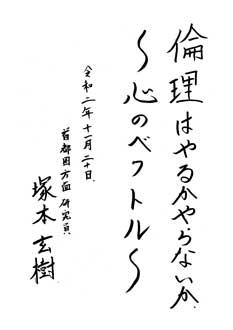 倫理はやるかやらないか.
〜心のベクトル〜
令和二年十一月二十日.
首都圏方面 研究員
塚本玄樹